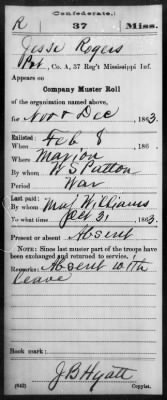 Confederate.
R 37 Miss.
Jesse Rogers
Pvt, Co. A, 37 Reg't Mississippi Inf.
Appears on
Company Muster Roll
of the organization named above,
for Nov & Dec, 1863.
Enlisted:
When Feb 8, 186
Where Marion
By whom W S Patton
Period War
Last paid:
By whom Maj Williams
To what time Oct 31, 1863.
Present or absent Absent
NOTE: Since last muster part of the troops have
been exchanged and returned to service.
Remarks: Absent with
leave
Book mark:
J B Hyatt
(642) Copyist.